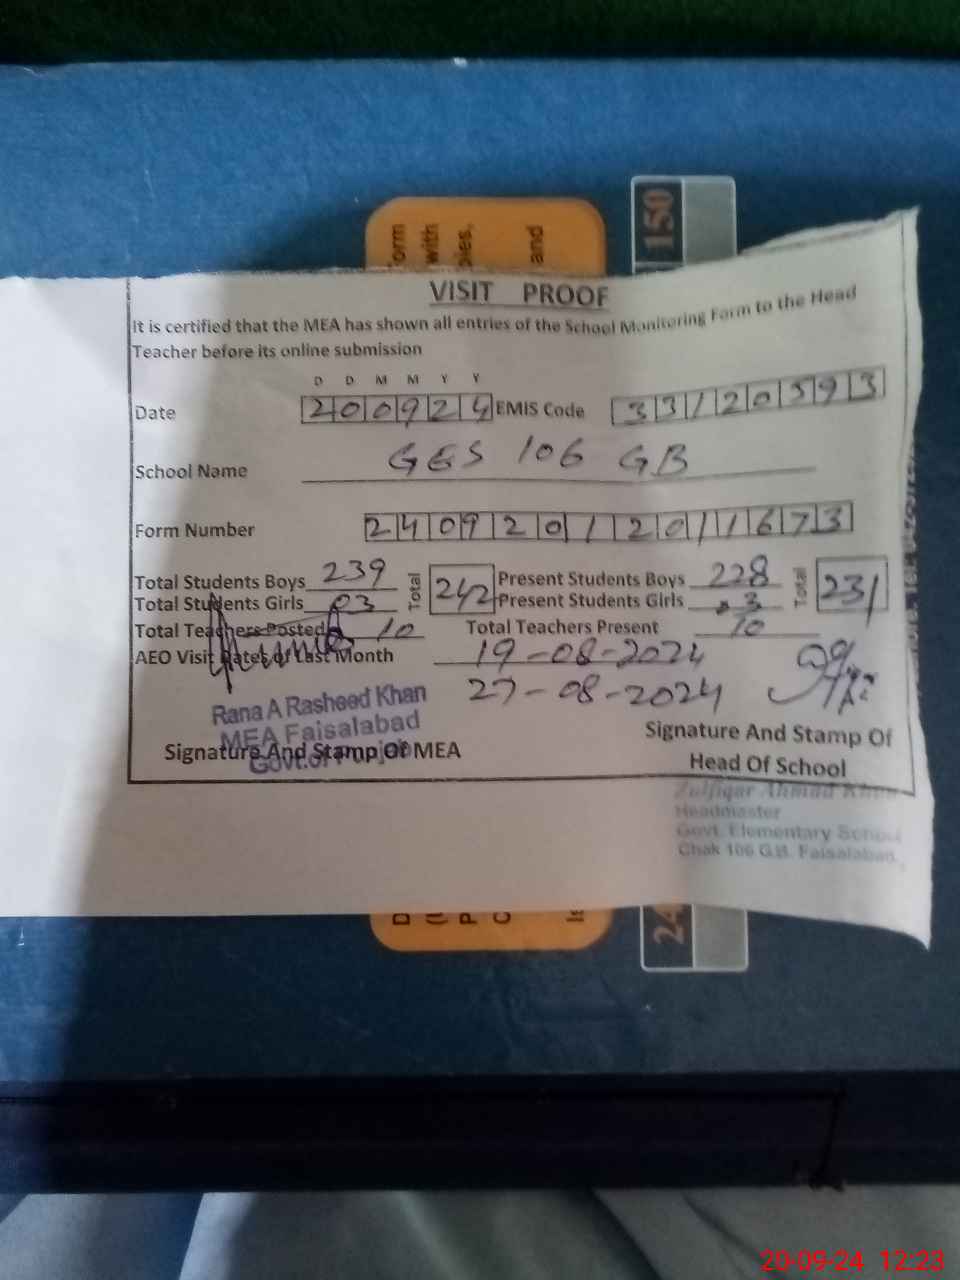 150
form
with
and
VISIT PROOF
It is certified that the MEA has shown all entries of the School Monitoring Form to the Head
Teacher before its online submission
D D M M Y Y
Date 200924 EMIS Code 33120593
School Name GES 106 GB
Form Number 240920120111673
Total Students Boys 239 Total 242 Present Students Boys 228 Total 231
Total Students Girls 03 Present Students Girls 3
Total Teachers Posted 10 Total Teachers Present 10
AEO Visit Dates of Last Month 19-08-2024
27-08-2024
Rana A Rasheed Khan
MEA Faisalabad
Govt. of Punjab
Signature And Stamp Of MEA
Signature And Stamp Of
Head Of School
Zulfiqar Ahmad Khan
Headmaster
Govt. Elementary School
Chak 106 G.B. Faisalabad.
24
20-09-24 12:23